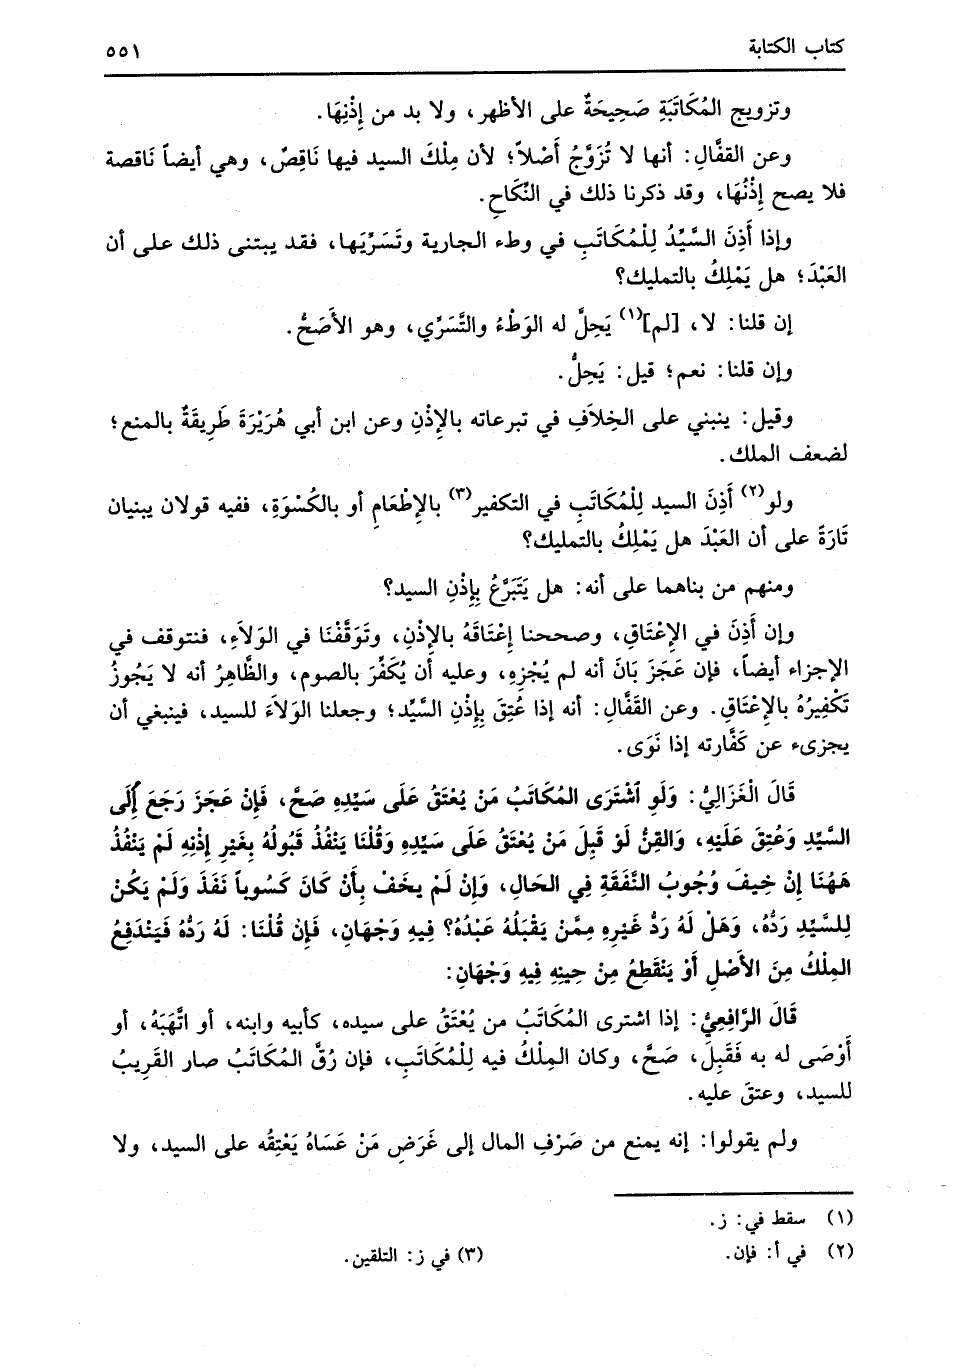 كتاب الكتابة
٥٥١
وتزويج المُكَاتَبَةِ صَحِيحَةٌ على الأظهر، ولا بد من إِذْنِهَا.
وعن القفَّالِ: أنها لا تُزَوَّجُ أَصْلاً؛ لأن مِلْكَ السيد فيها نَاقِصٌ، وهي أيضاً نَاقصة
فلا يصح إِذْنُهَا، وقد ذكرنا ذلك في النِّكَاحِ.
وإذا أَذِنَ السَّيِّدُ لِلْمُكَاتَبِ في وطء الجارية وتَسَرِّيَها، فقد يبتنى ذلك على أن
العَبْدَ؛ هل يَمْلِكُ بالتمليك؟
إن قلنا: لا، [لم](١) يَحِلَّ له الوَطْءُ والتَّسَرِّي، وهو الأَصَحُّ.
وإن قلنا: نعم؛ قيل: يَحِلُّ.
وقيل: ينبني على الخِلاَفِ في تبرعاته بالإِذْنِ وعن ابن أبي هُرَيْرَةَ طَرِيقَةٌ بالمنع؛
لضعف الملك.
ولو(٢) أَذِنَ السيد لِلْمُكَاتَبِ في التكفير(٣) بالإِطْعَامِ أو بالكُسْوَةِ، ففيه قولان يبنيان
تَارَةً على أن العَبْدَ هل يَمْلِكُ بالتمليك؟
ومنهم من بناهما على أنه: هل يَتَبَرَّعُ بِإِذْنِ السيد؟
وإن أَذِنَ في الإِعْتَاقِ، وصححنا إِعْتَاقَهُ بالإِذْنِ، وتَوَقَّفْنَا في الوَلاَءِ، فنتوقف في
الإجزاء أيضاً، فإن عَجَزَ بَانَ أنه لم يُجْزِهِ، وعليه أن يُكَفِّرَ بالصوم، والظَّاهِرُ أنه لا يَجُوزُ
تَكْفِيرُهُ بالإِعْتَاقِ. وعن القَفَّالِ: أنه إذا عُتِقَ بِإِذْنِ السَّيِّدِ؛ وجعلنا الوَلاَءَ للسيد، فينبغي أن
يجزىء عن كَفَّارته إذا نَوَى.
قَالَ الْغَزَالِيُّ: وَلَوِ اَشْتَرَى المُكَاتَبُ مَنْ يُعْتَقُ عَلَى سَيِّدِهِ صَحَّ، فَإِنْ عَجَزَ رَجَعَ إِلَى
السَّيِّدِ وَعُتِقَ عَلَيْهِ، وَالقِنُّ لَوْ قَبِلَ مَنْ يُعْتَقُ عَلَى سَيِّدِهِ وَقُلْنَا يَنْفُذُ قَبُولُهُ بِغَيْرِ إِذْنِهِ لَمْ يَنْفُذْ
هَهُنَا إِنْ خِيفَ وُجُوبُ النَّفَقَةِ فِي الحَالِ، وَإِنْ لَمْ يخَفْ بِأَنْ كَانَ كَسُوباً نَفَذَ وَلَمْ يَكُنْ
لِلسَّيِّدِ رَدُّهُ، وَهَلْ لَهُ رَدُّ غَيْرِهِ مِمَّنْ يَقْبَلُهُ عَبْدُهُ؟ فِيهِ وَجْهَانِ، فَإِنْ قُلْنَا: لَهُ رَدُّهُ فَيَنْدَفِعُ
المِلْكُ مِنَ الأَصْلِ أَوْ يَنْقَطِعُ مِنْ حِينِهِ فِيهِ وَجْهَانِ:
قَالَ الرَّافِعِيُّ: إذا اشترى المُكَاتَبُ من يُعْتَقُ على سيده، كأبيه وابنه، أو اتَّهَبَهُ، أو
أَوْصَى له به فَقَبِلَ، صَحَّ، وكان المِلْكُ فيه لِلْمُكَاتَبِ، فإن رُقَّ المُكَاتَبُ صار القَرِيبُ
للسيد، وعتقَ عليه.
ولم يقولوا: إنه يمنع من صَرْفِ المال إلى غَرَضِ مَنْ عَسَاهُ يَعْتِقُه على السيد، ولا
(١) سقط في: ز.
(٢) في أ: فإن.
(٣) في ز: التلقين.